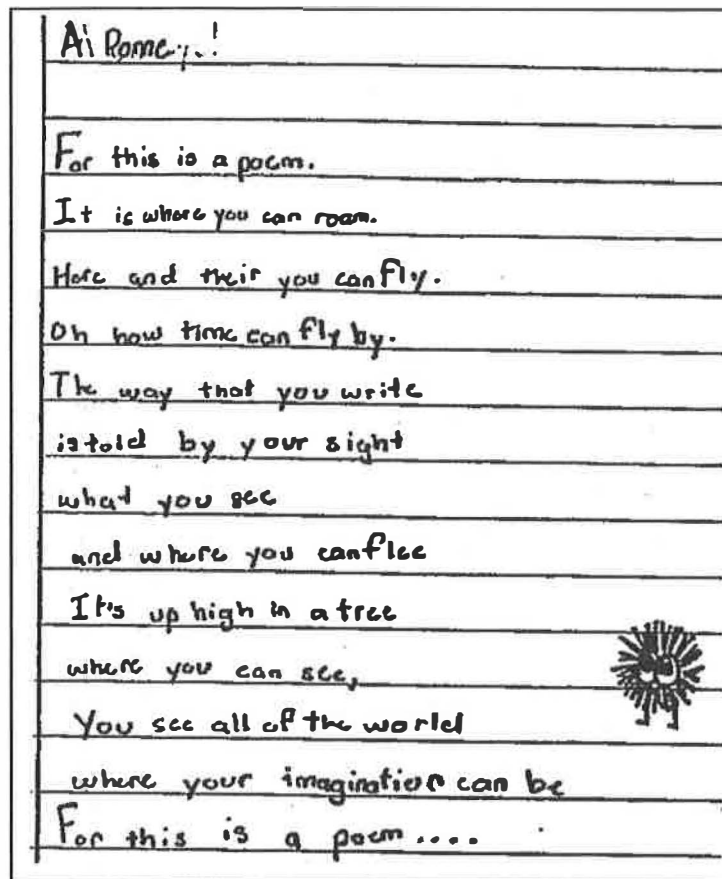 For this is a poem.
It is where you can roam.
Here and their you can fly.
Oh how time can fly by.
The way that you write
is told by your sight
what you see
and where you can flee
It's up high in a tree
where you can see,
You see all of the world
where your imagination can be
For this is a poem....